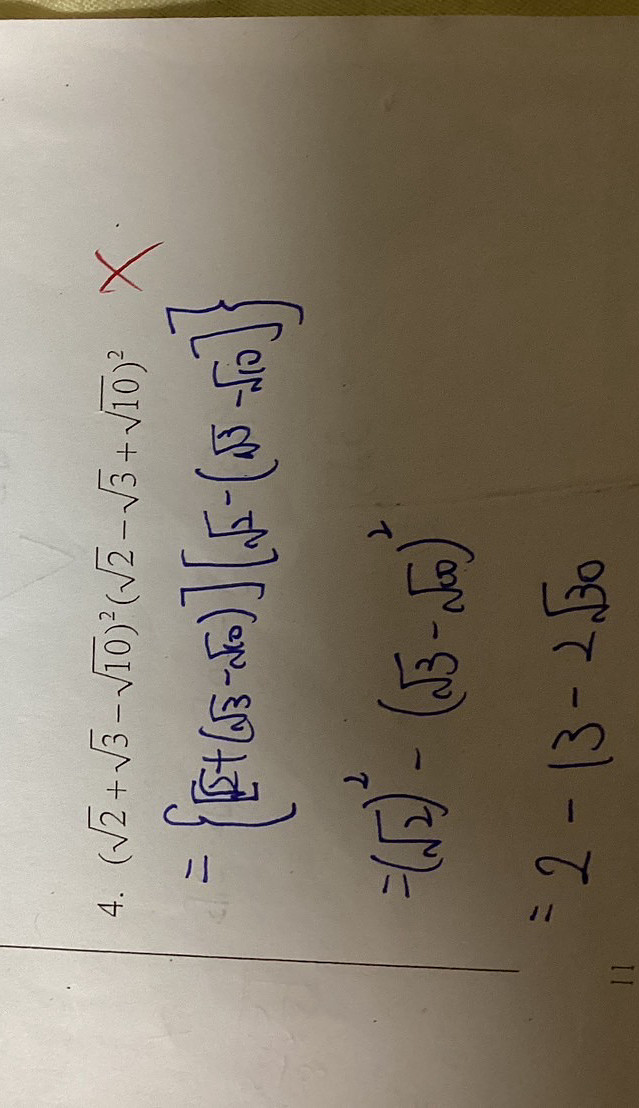 4. (√2+√3−√10)²(√2−√3+√10)² ×
= {[√2+(√3-√10)][√2-(√3-√10)]}
=(√2)² - (√3-√10)²
= 2 - 13 - 2√30
11